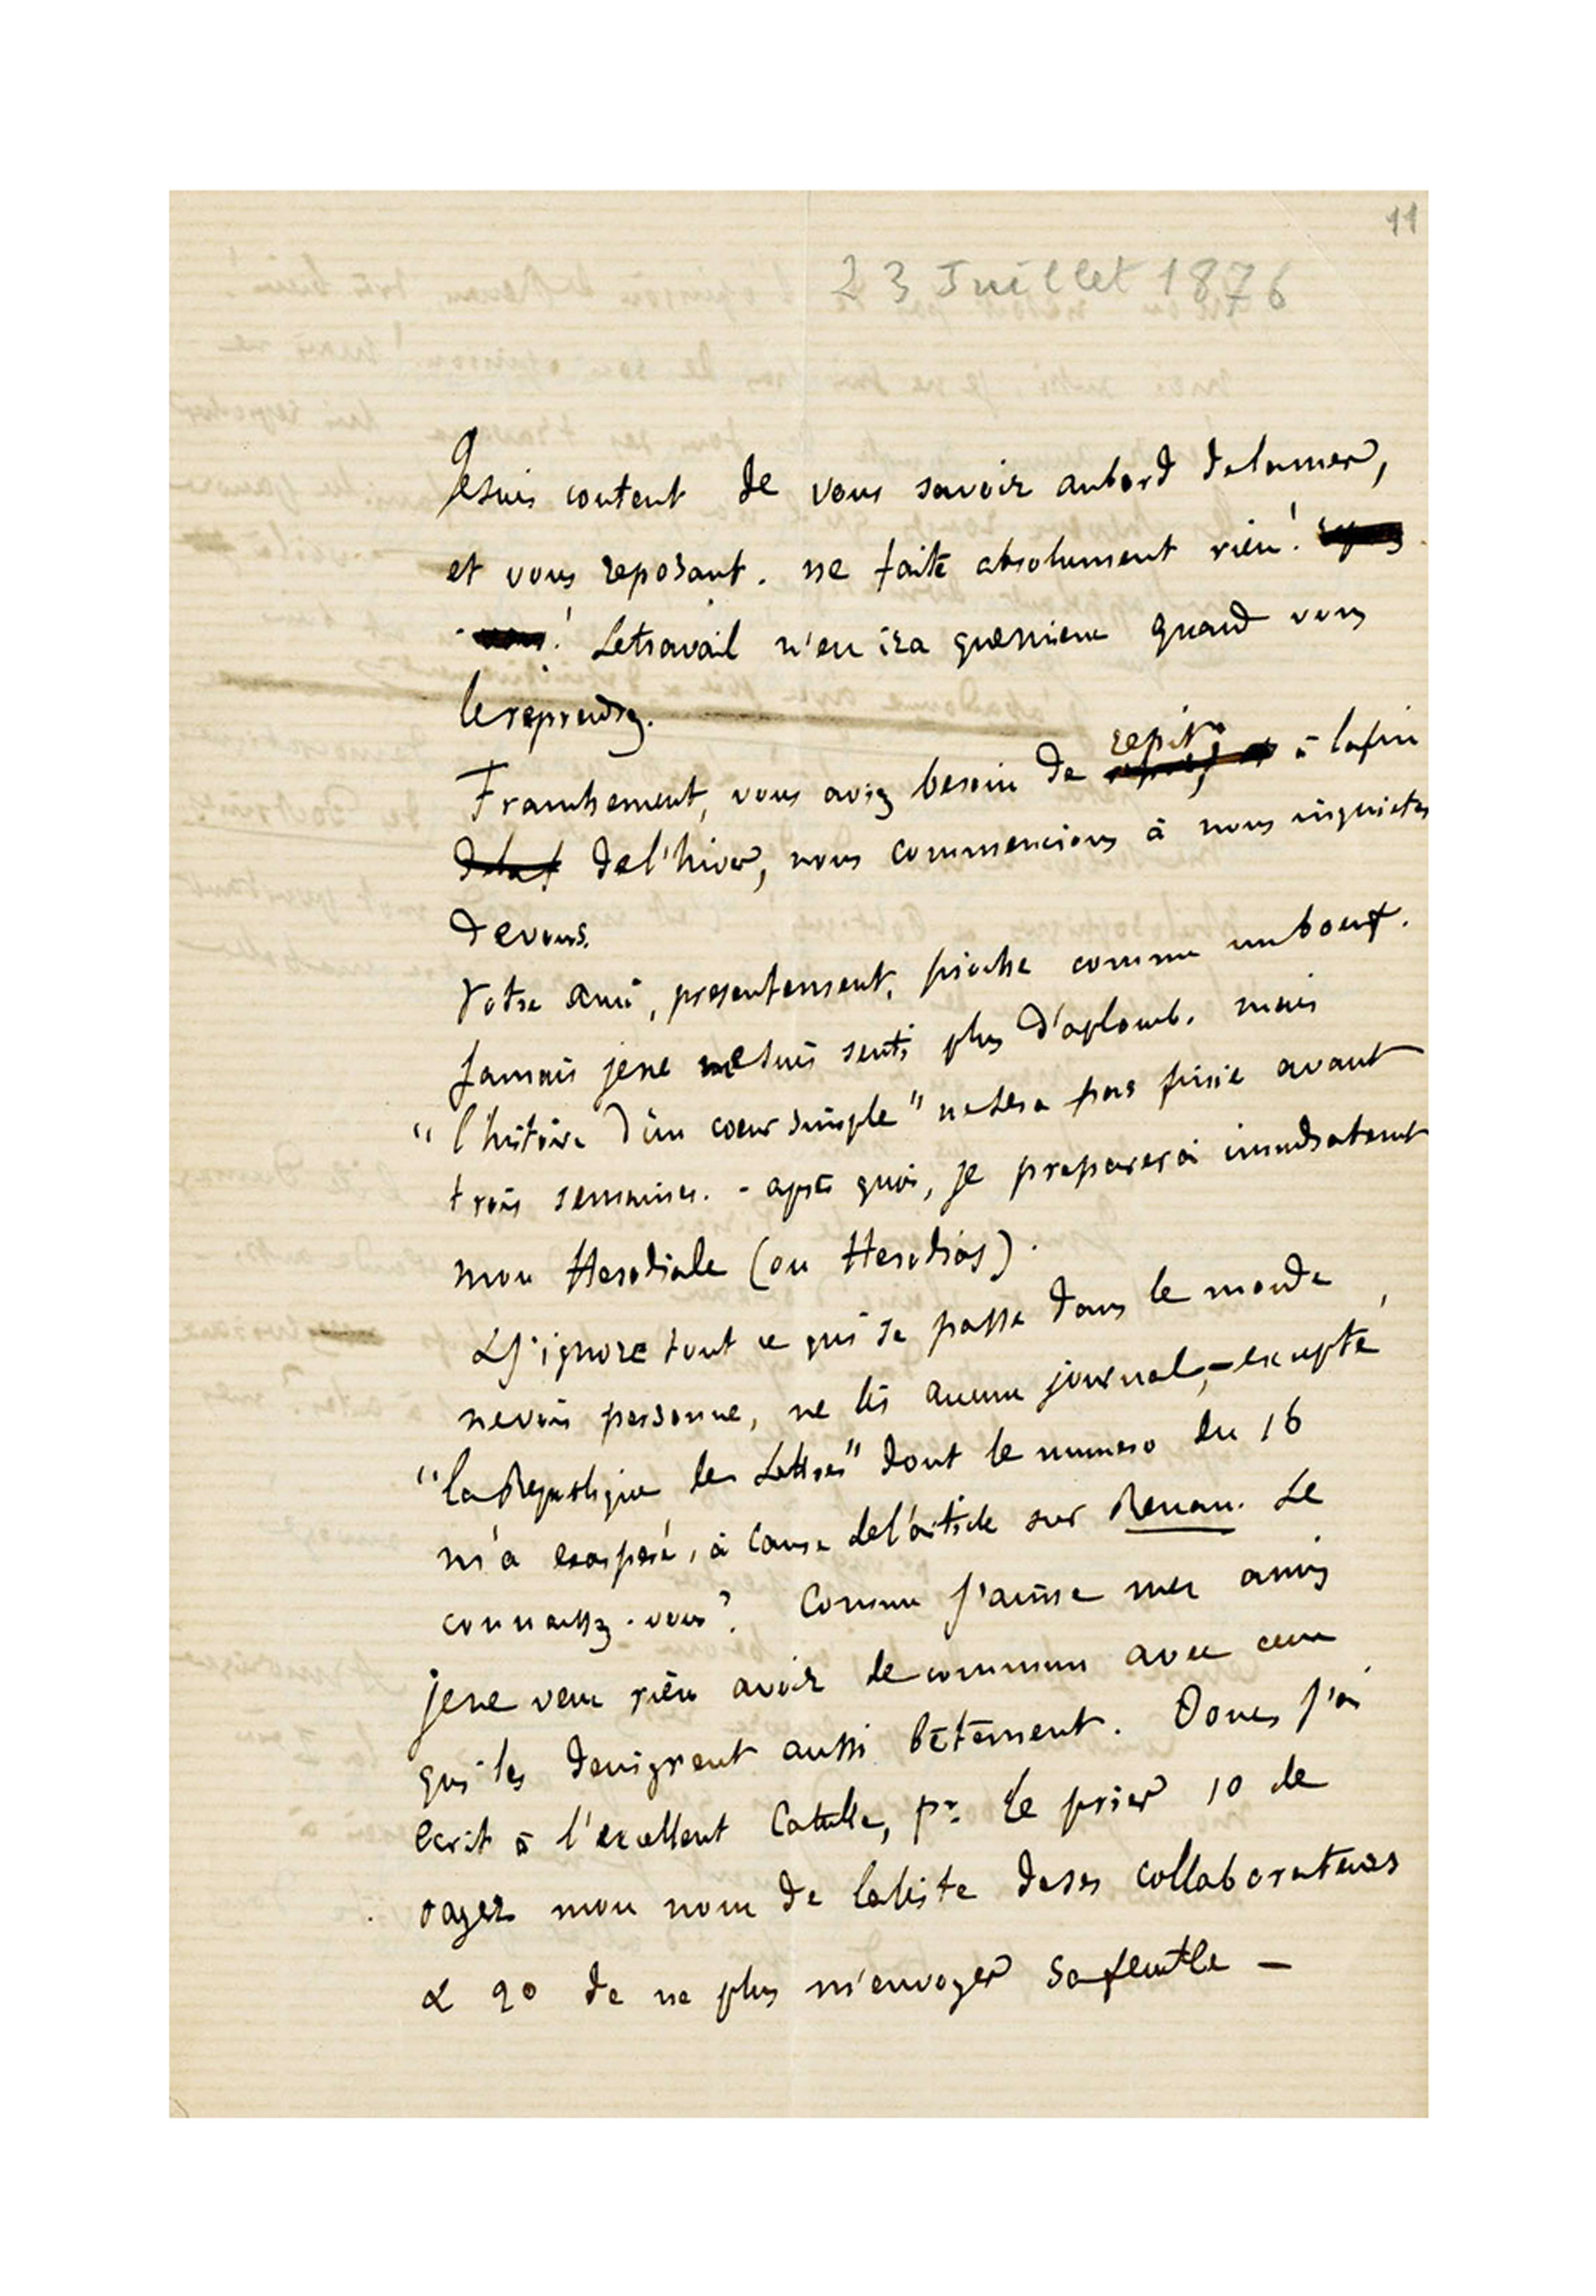 11
23 Juillet 1876
Je suis content de vous savoir au bord de la mer,
et vous reposant. ne faites absolument rien!
! Le travail n'en ira que mieux quand vous
le reprendrez.
Franchement, vous aviez besoin de repit à la fin
de l'hiver, nous commencions à nous inquieter
de vous.
Votre ami, presentement, pioche comme un boeuf.
Jamais je ne me suis senti plus d'aplomb. mais
"l'histoire d'un coeur simple" ne sera pas finie avant
trois semaines. - après quoi, je preparerai immediatement
mon Herodiade (ou Herodias).
& j'ignore tout ce qui se passe dans le monde,
ne vois personne, ne lis aucun journal, - excepté
"la Republique des Lettres" dont le numero du 16
m'a exaspéré, à cause de l'article sur Renan. Le
connaissez-vous? Comme j'aime mes amis
je ne veux rien avoir de commun avec ceux
qui les denigrent aussi bêtement. Donc, j'ai
ecrit à l'excellent Catulle, pr. le prier 1º de
rayer mon nom de la liste de ses collaborateurs
& 2º de ne plus m'envoyer sa feuille -